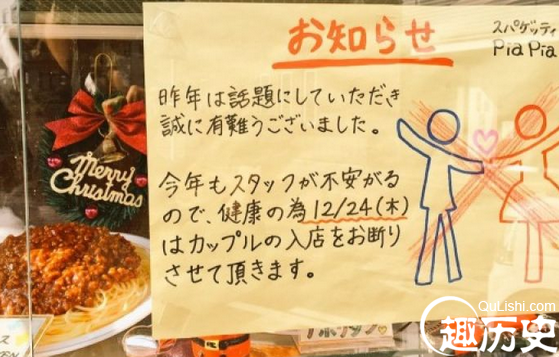 お知らせ
スパゲッティ
Pia Pia
昨年は話題にしていただき
誠に有難うございました。
今年もスタッフが不安がる
ので、健康の為12/24(木)
はカップルの入店をお断り
させて頂きます。
Merry
Christmas
QuLishi.com
趣历史